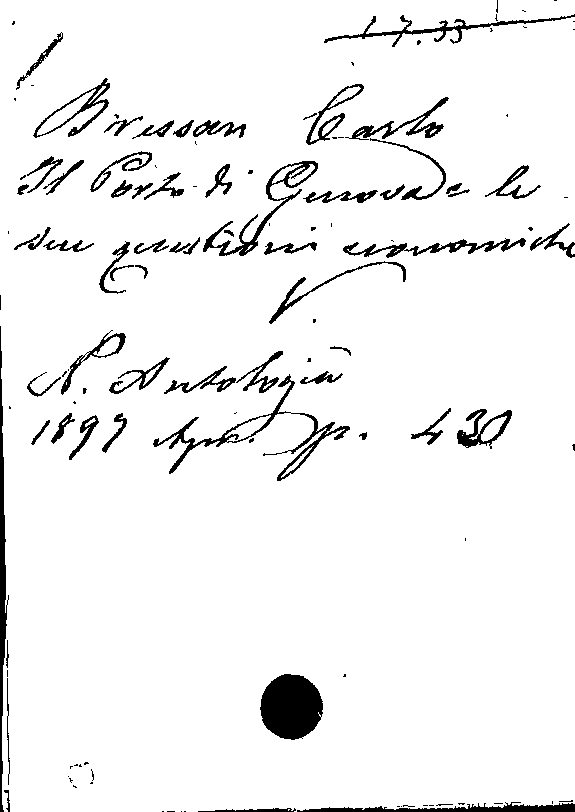 1 7.33
Bressan Carlo
Il Porto di Genova e le
sue questioni economiche
V.
N. Antologia
1897 Apr. p. 430